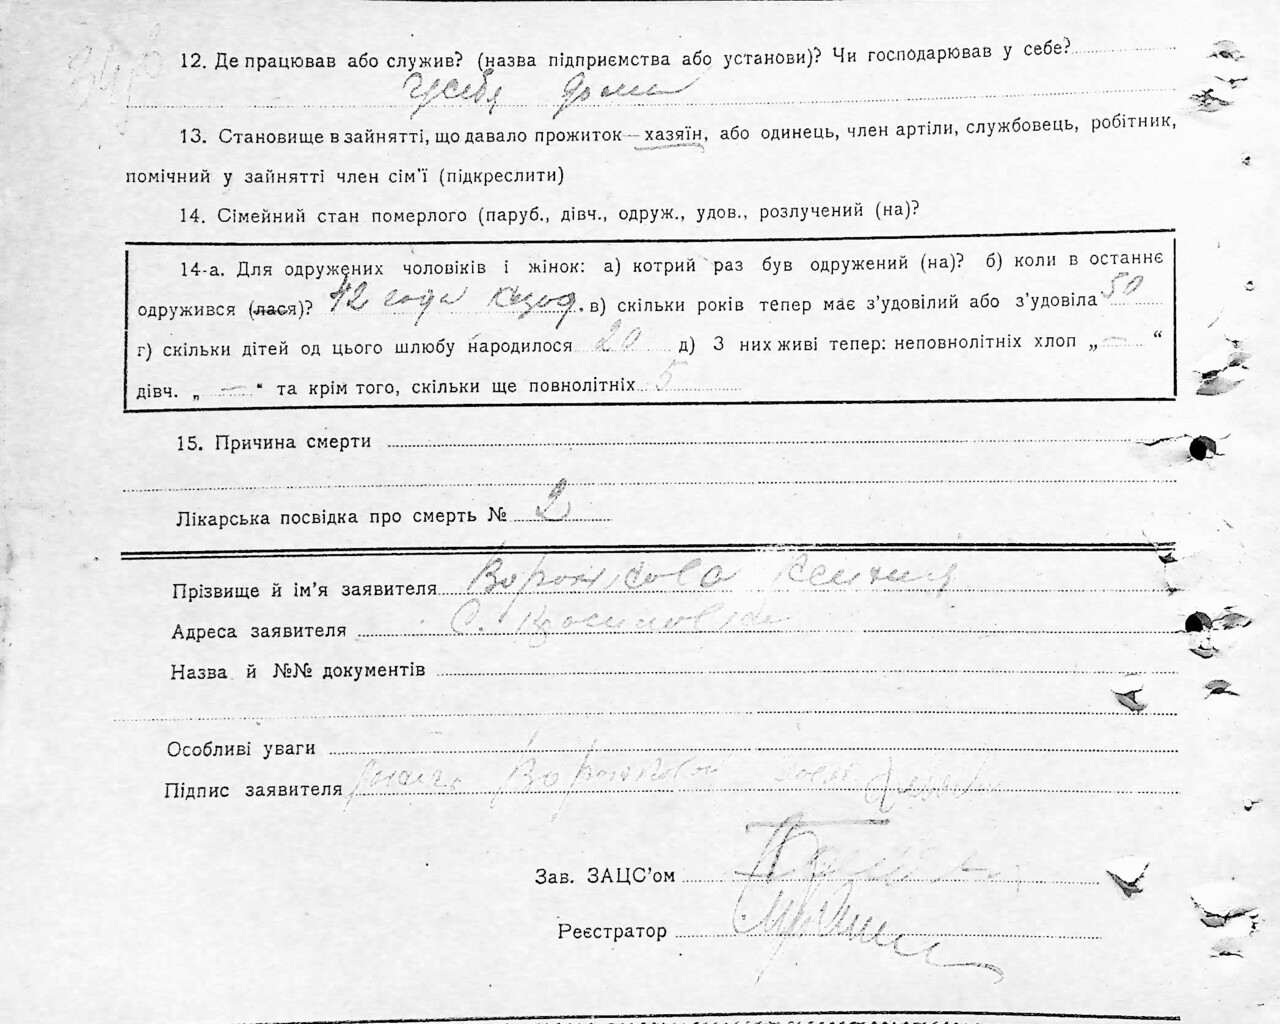 12. Де працював або служив? (назва підприємства або установи)? Чи господарював у себе?
у себя дома
13. Становище в зайнятті, що давало прожиток — хазяїн, або одинець, член артіли, службовець, робітник,
помічний у зайнятті член сім'ї (підкреслити)
14. Сімейний стан померлого (паруб., дівч., одруж., удов., розлучений (на)?
14-а. Для одружених чоловіків і жінок: а) котрий раз був одружений (на)? б) коли в останнє
одружився (лася)? 12 года в) скільки років тепер має з'удовілий або з'удовіла 50
г) скільки дітей од цього шлюбу народилося 20 д) З них живі тепер: неповнолітніх хлоп „ — “
дівч. „ — “ та крім того, скільки ще повнолітніх 5
15. Причина смерти
Лікарська посвідка про смерть № 2
Прізвище й ім'я заявителя
Адреса заявителя С.
Назва й №№ документів
Особливі уваги
Підпис заявителя
Зав. ЗАЦС'ом
Реєстратор